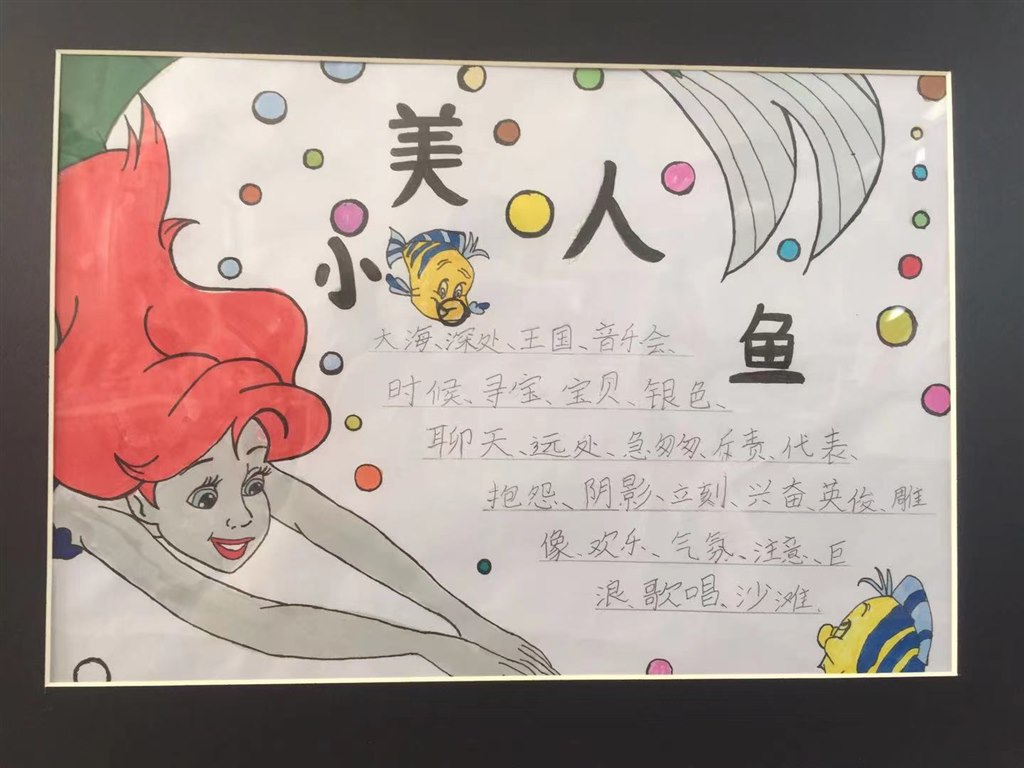 小美人鱼
大海、深处、王国、音乐会、
时候、寻宝、宝贝、银色、
聊天、远处、急匆匆、斥责、代表、
抱怨、阴影、立刻、兴奋、英俊、雕
像、欢乐、气氛、注意、巨
浪、歌唱、沙滩、